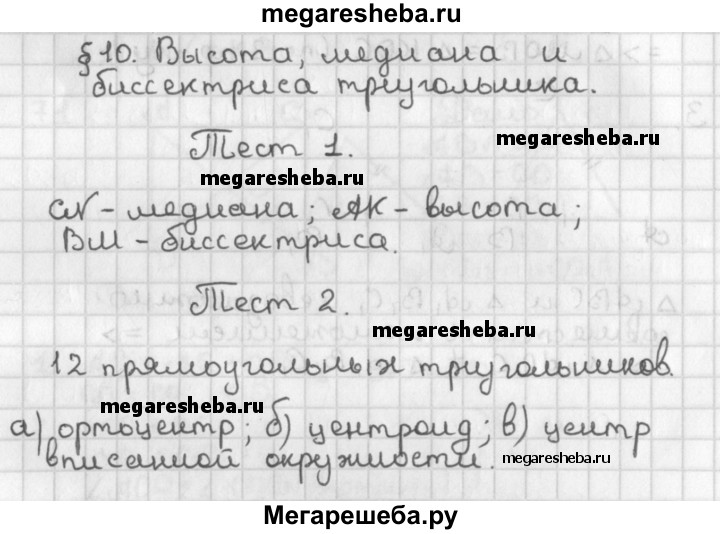 megaresheba.ru
§ 10. Высота, медиана и
биссектриса треугольника.
Тест 1.
megaresheba.ru
megaresheba.ru
CN - медиана; AK - высота;
BM - биссектриса.
Тест 2.
megaresheba.ru
12 прямоугольных треугольников.
megaresheba.ru
а) ортоцентр; б) центроид; в) центр
вписанной окружности.
megaresheba.ru
Мегарешеба.ру